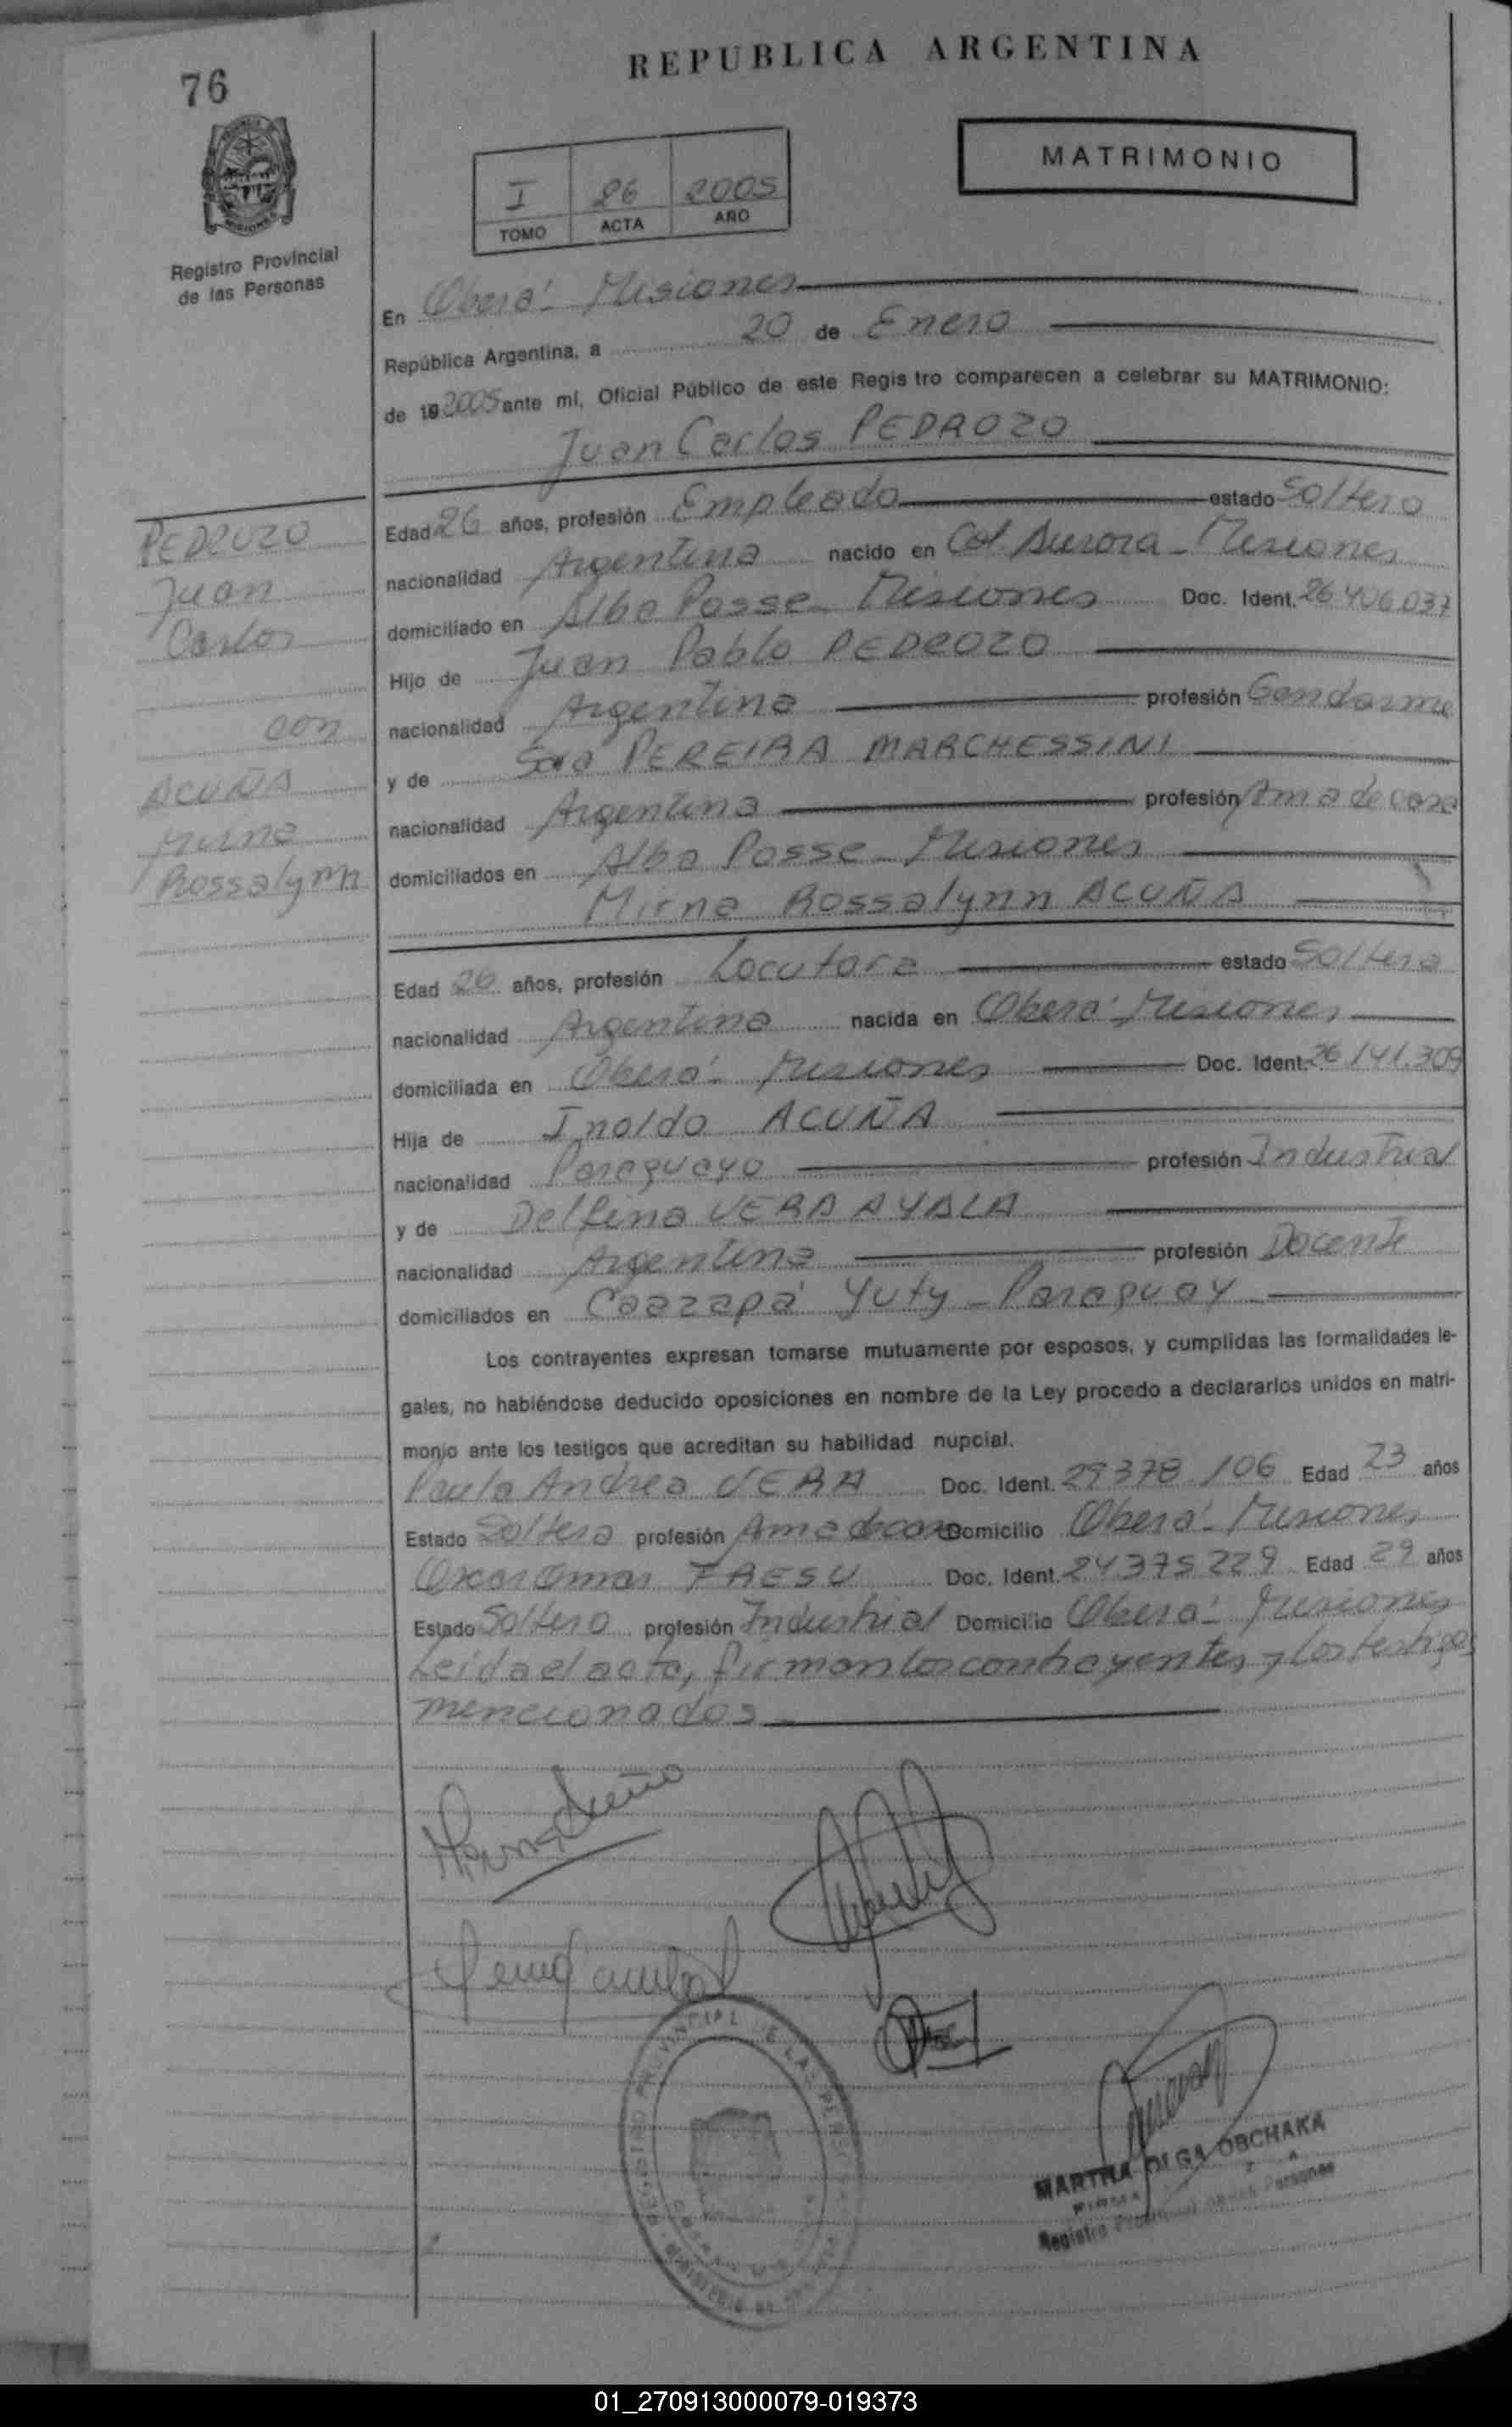 76
REPUBLICA ARGENTINA
MATRIMONIO
I 26 2005
TOMO ACTA AÑO
Registro Provincial
de las Personas
En Oberá - Misiones
República Argentina, a 20 de Enero
de 19 2005 ante mí, Oficial Público de este Regis tro comparecen a celebrar su MATRIMONIO:
Juan Carlos PEDROZO
Edad 26 años, profesión Empleado estado Soltero
nacionalidad Argentina nacido en Col Aurora - Misiones
domiciliado en Alba Posse - Misiones Doc. Ident. 26.406.037
Hijo de Juan Pablo PEDROZO
nacionalidad Argentina profesión Gendarme
y de Sara PEREIRA MARCHESSINI
nacionalidad Argentina profesión Ama de casa
domiciliados en Alba Posse - Misiones
Mirna Rossalynn ACUÑA
PEDROZO
Juan
Carlos
con
ACUÑA
Mirna
Rossalynn
Edad 26 años, profesión Locutora estado Soltera
nacionalidad Argentina nacida en Oberá - Misiones
domiciliada en Oberá - Misiones Doc. Ident. 26.141.309
Hija de Inoldo ACUÑA
nacionalidad Paraguayo profesión Industrial
y de Delfina VERA AYALA
nacionalidad Argentina profesión Docente
domiciliados en Caazapá Yuty - Paraguay
Los contrayentes expresan tomarse mutuamente por esposos, y cumplidas las formalidades le-
gales, no habiéndose deducido oposiciones en nombre de la Ley procedo a declararlos unidos en matri-
monio ante los testigos que acreditan su habilidad nupcial.
Paula Andrea VERA Doc. Ident. 29378106 Edad 23 años
Estado Soltera profesión Ama de casa Domicilio Oberá - Misiones
Oscar Omar FRESU Doc. Ident. 24375229 Edad 29 años
Estado Soltero profesión Industrial Domicilio Oberá - Misiones
Leída el acta, firman los contrayentes y los testigos
mencionados
MARTHA OLGA OBCHAKA
Registro Personas
01_270913000079-019373